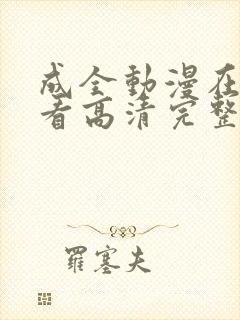 成全動漫在
看高清完整
羅塞夫